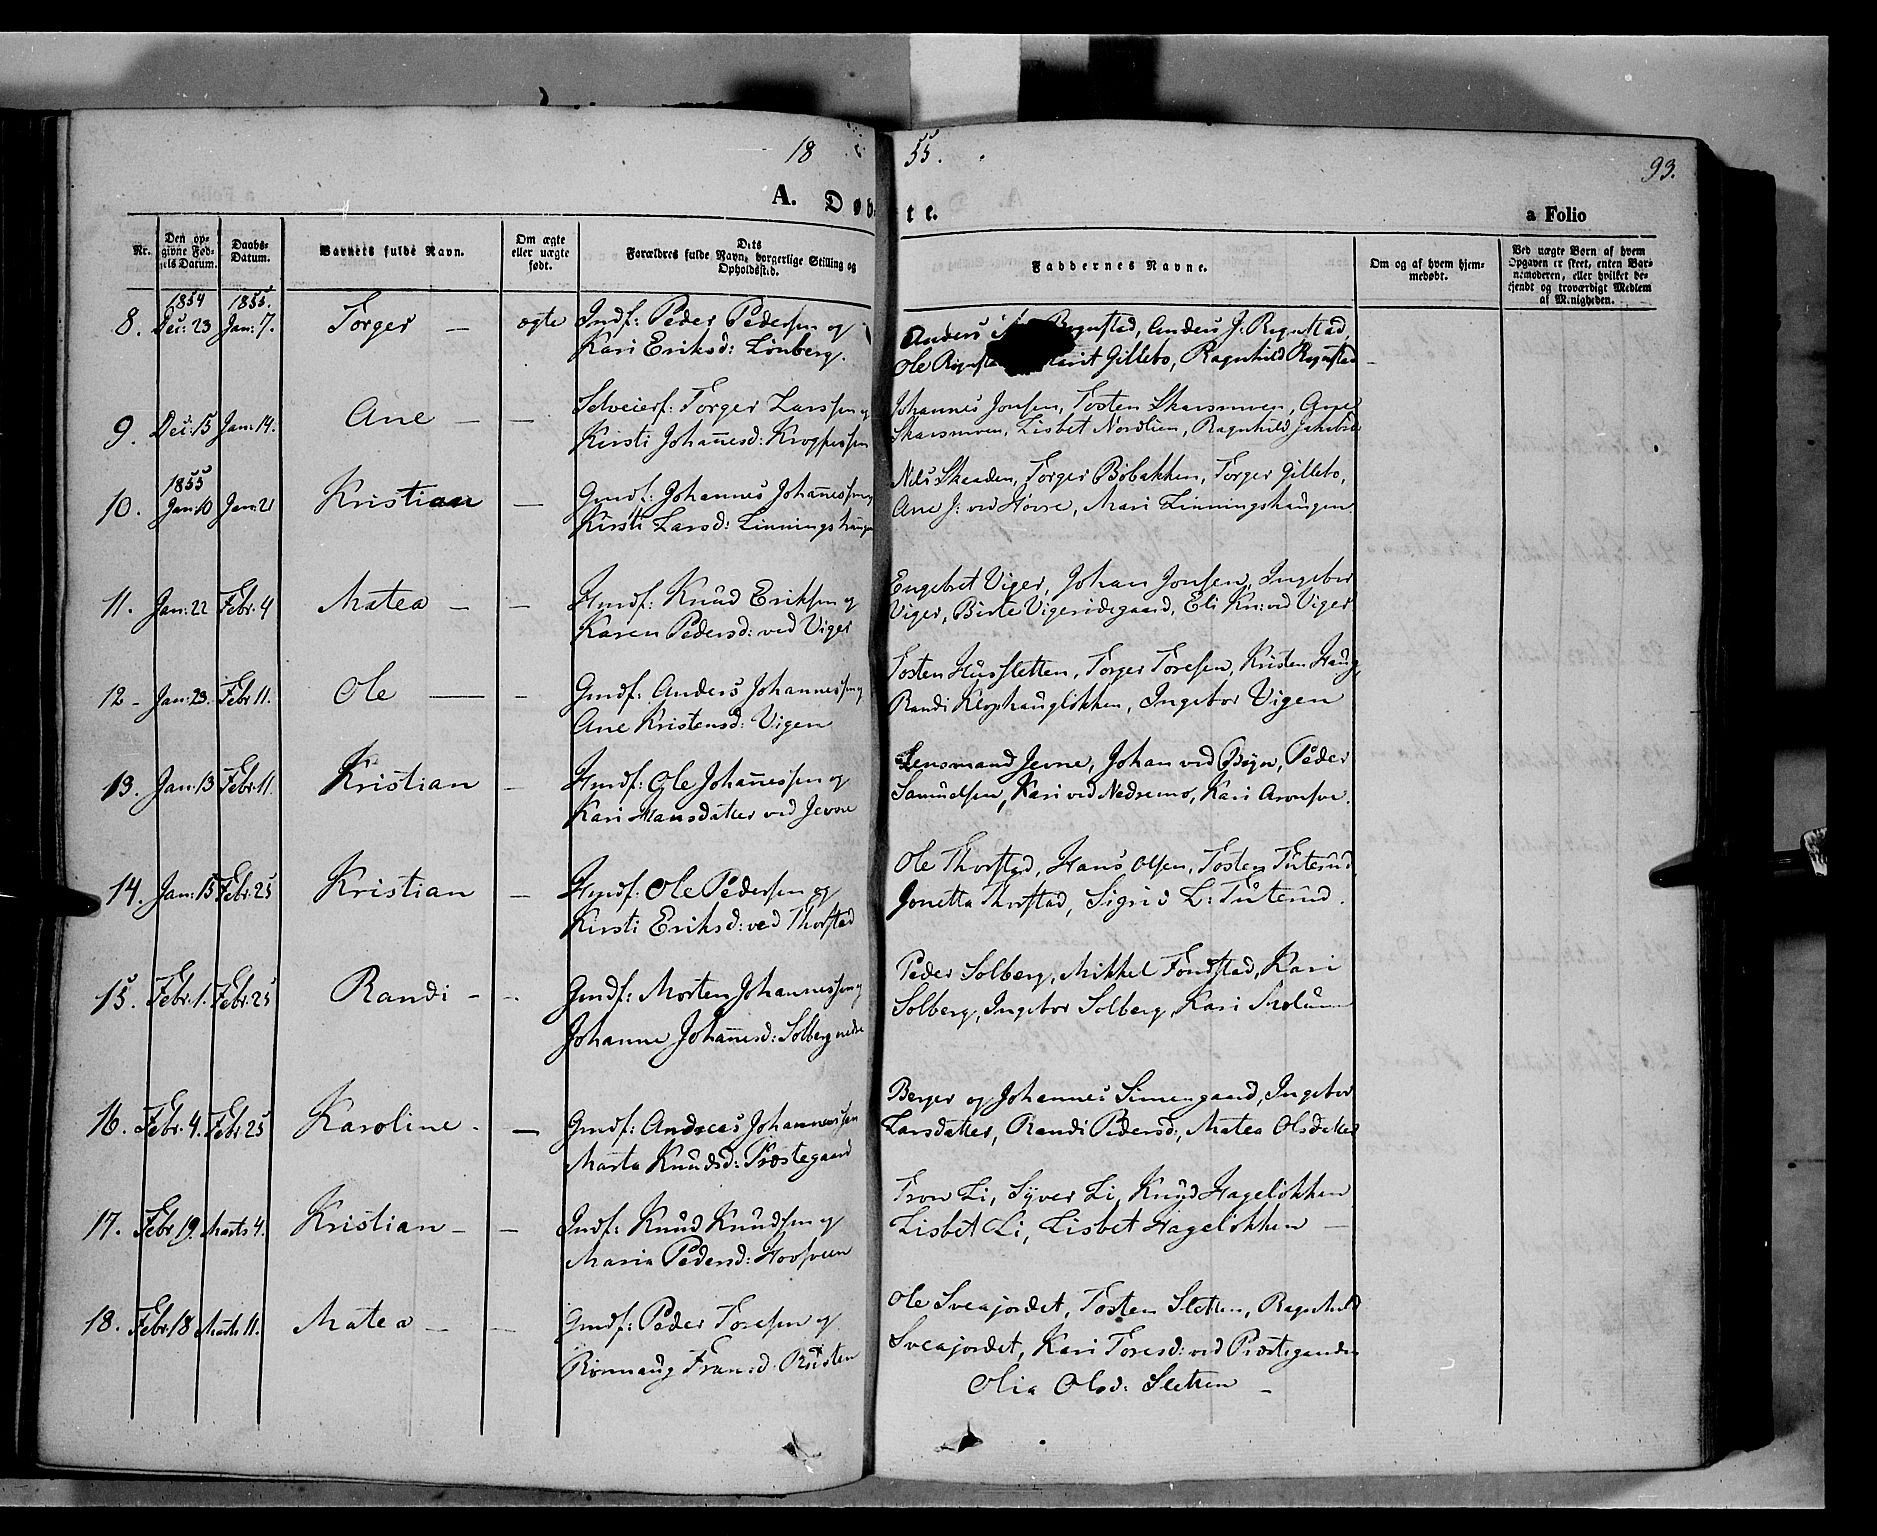 18 55.
93.
A. Døbte.
a Folio
Nr.
Den opgivne Fødsels Datum.
Daabs-Datum.
Barnets fulde Navn.
Om ægte eller uægte født.
Forældres fulde Navn, borgerlige Stilling og Opholdssted.
Faddernes Navne.
Om og af hvem hjemmedøbt.
Ved uægte Børn af hvem Opgaven er skeet, enten Barnemoderen, eller hvilket bekjendt og troværdigt Medlem af Menigheden.
1854 1855.
8. Dec: 23 Jan: 7. Torger — ægte Indf: Peder Pedersen og Anders Rognstad, Anders J: Rognstad,
Kari Eriksd: Lønberg. Ole Marit Gillebo, Ragnhild Rognstad
9. Dec: 15 Jan: 14. Ane — — Selveierf: Torger Larssen og Johannes Jonsen, Tosten Skarsmoen, Ane
Kirsti Johanesd: Lisbet Nordlien, Ragnhild
1855
10. Jan: 10 Jan: 21 Kristian — Gmdf: Johannes Johannessen Nils Skaaden, Torger Bøbakken, Torger Gillebo,
Kirsti Larsd: Linningshaugen Ane J: ved Høvre, Mari Linningshaugen
11. Jan: 22 Febr. 4 Matea — — Hmdf: Knud Eriksen og Engebret Viger, Johan Jonsen, Ingebor
Karen Pedersd: ved Viger Viger, Birte Vigeridegaard, Eli Kn: ved Viger
12 - Jan: 23. Febr. 11. Ole — — Gmdf: Anders Johannessen Tosten Hussletten, Torger Toresen, Kristen Haug,
Ane Kristensd: Vigen Randi Klophaugløkken, Ingebor Vigen
13. Jan: 13 Febr. 11. Kristian — Hmdf: Ole Johanessen og Lensmand Jevne, Johan ved Peder
Kari Hansdatter ved Jevne Samuelsen, Kari ved Nedremo, Kari
14. Jan: 15 Febr. 25 Kristian — Hmdf: Ole Pedersen og Ole Thorstad, Hans Olsen, Tosten
Kirsti Eriksd: ved Thorstad Jonetta Thorstad, Sigrid L:
15. Febr. 1. Febr. 25 Randi — Gmdf: Morten Johannessen Peder Solberg, Mikkel Fondstad, Kari
Johanne Johanesd: Solberg nedre Solberg, Ingebor Solberg, Kari
16. Febr. 4. Febr. 25 Karoline — Gmdf: Andreas Johannessen Berger og Johannes Simengaard, Ingebor
Marta Knudsd: Præstegaard Larsdatter, Randi Pedersd:, Matea Olsdatter
17. Febr. 19. Marts 4. Kristian — — Indf: Knud Knudsen og Tron Li, Syver Li, Knud Hageløkken
Maria Pedersd: Lisbet Li, Lisbet Hageløkken —
18. Febr. 18 Marts 11. Matea — — Gmdf: Peder Toresen og Ole Sveajordet, Tosten Sletten, Ragnhild
Rønnaug Fransd: Rusten Sveajordet, Kari Toresd: ved Præstegaarden
Olia Olsd: Sletten —